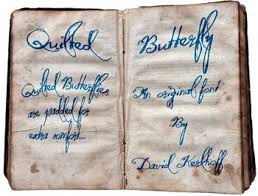 Quilted
Quilted Butterflies
are padded for
extra comfort...
Butterfly
An original font
By
David Kerkhoff